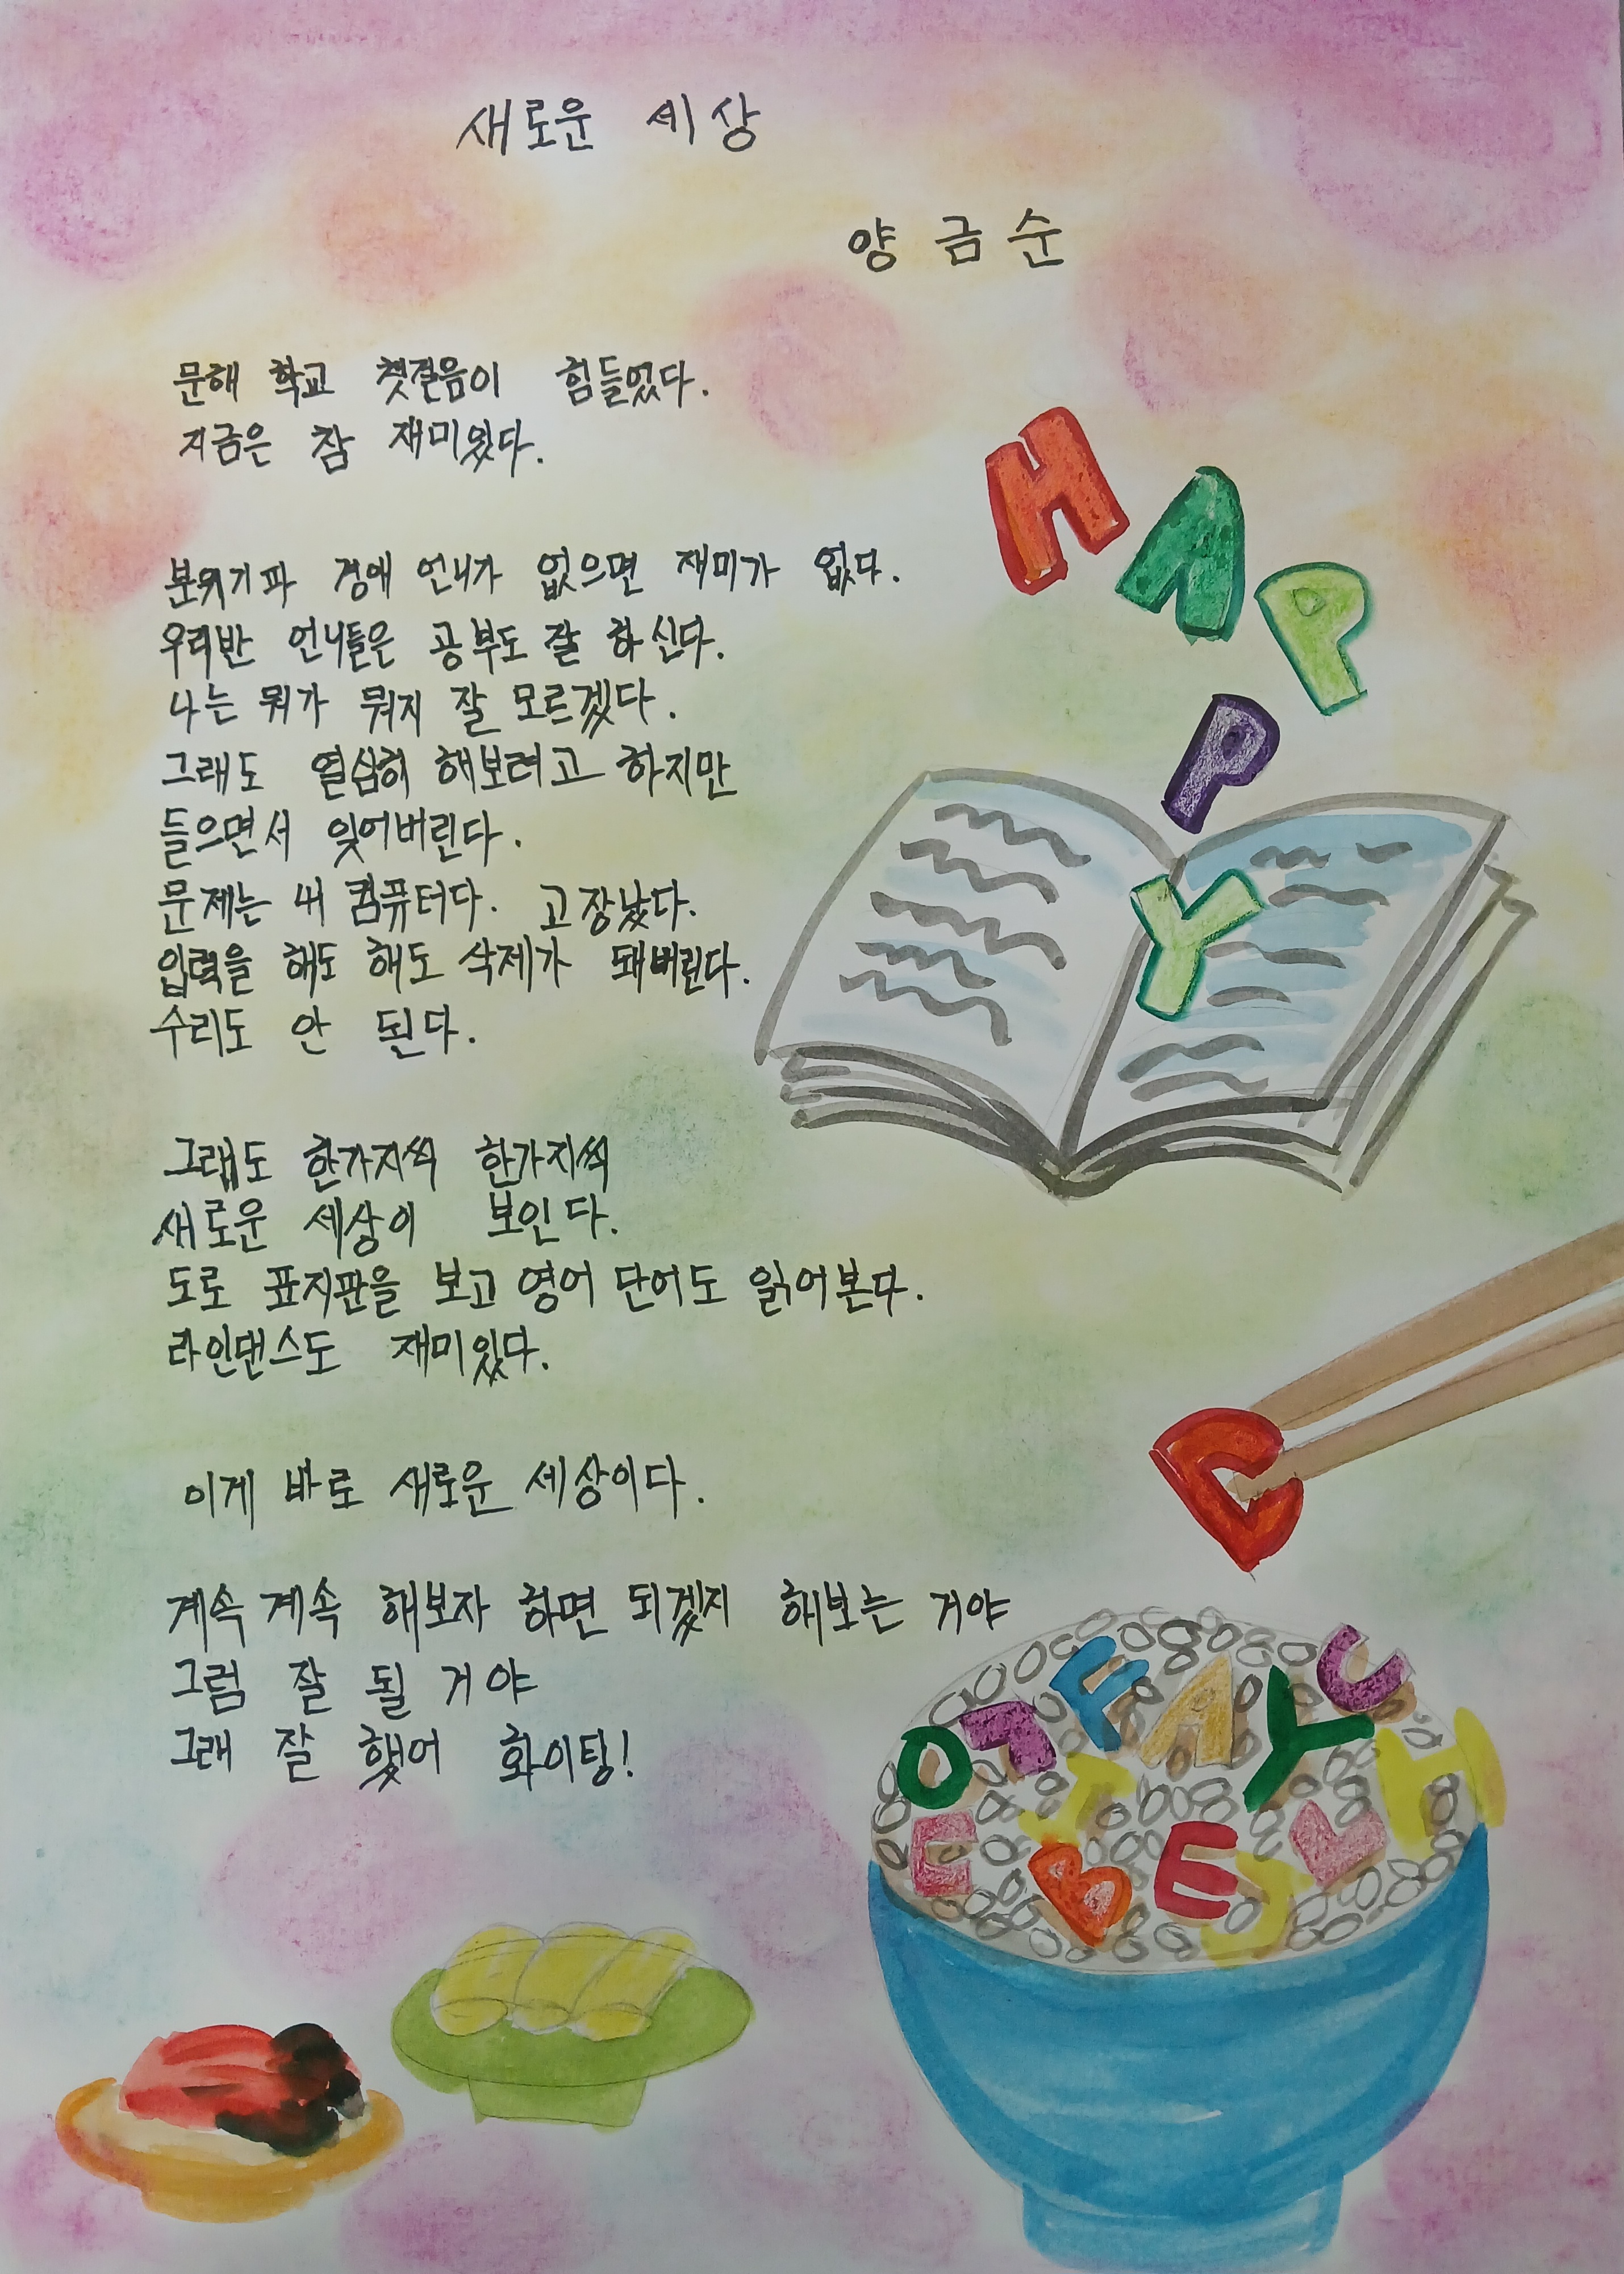 새로운 세상
양금순
문해 학교 첫걸음이 힘들었다.
지금은 참 재미있다.
분위기파 경애 언니가 없으면 재미가 없다.
우리반 언니들은 공부도 잘 하신다.
나는 뭐가 뭐지 잘 모르겠다.
그래도 열심히 해보려고 하지만
들으면서 잊어버린다.
문제는 내 컴퓨터다. 고장났다.
입력을 해도 해도 삭제가 돼버린다.
수리도 안 된다.
그래도 한가지씩 한가지씩
새로운 세상이 보인다.
도로 표지판을 보고 영어 단어도 읽어본다.
라인댄스도 재미있다.
이게 바로 새로운 세상이다.
계속 계속 해보자 하면 되겠지 해보는 거야
그럼 잘 될 거야
그래 잘 했어 화이팅!
HAPPY
C
O T F A Y C
I H
E B E J L